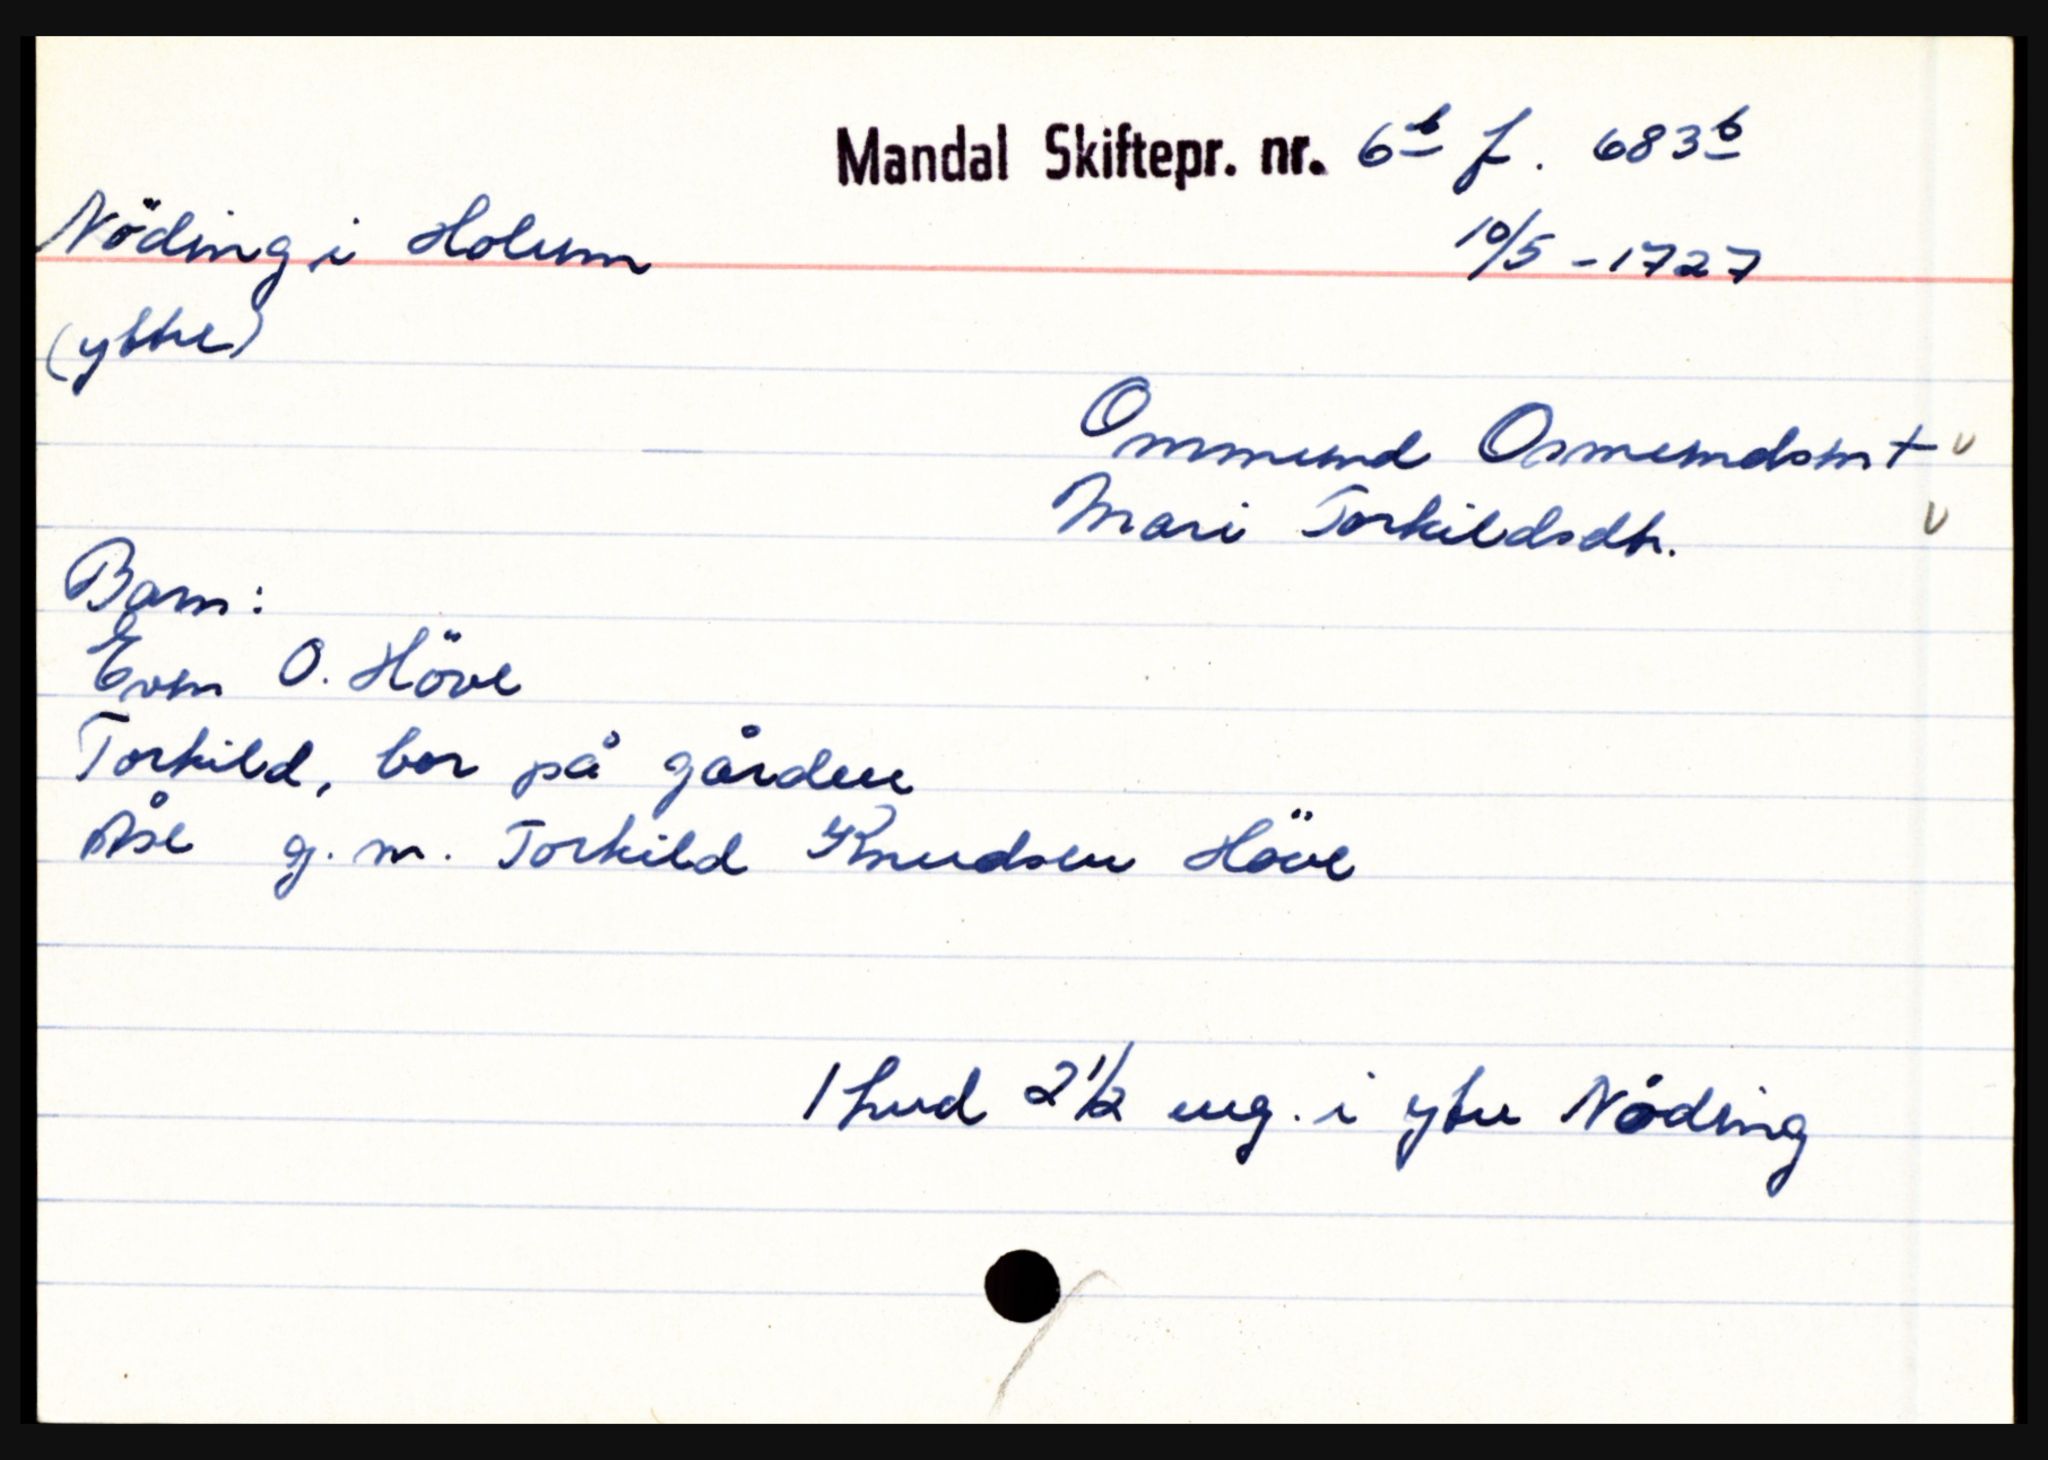 Mandal Skiftepr. nr. 6b f. 683b
Nöding i Holum 10/5 - 1727
(ytre)
Ommund Osmundsen + v
Mari Torkildsdtr. v
Barn:
Even O. Höve
Torkild, bor på gården
Åse g. m. Torkild Knudsen Höve
1 hud 2 1/2 eng. i ytre Nöding